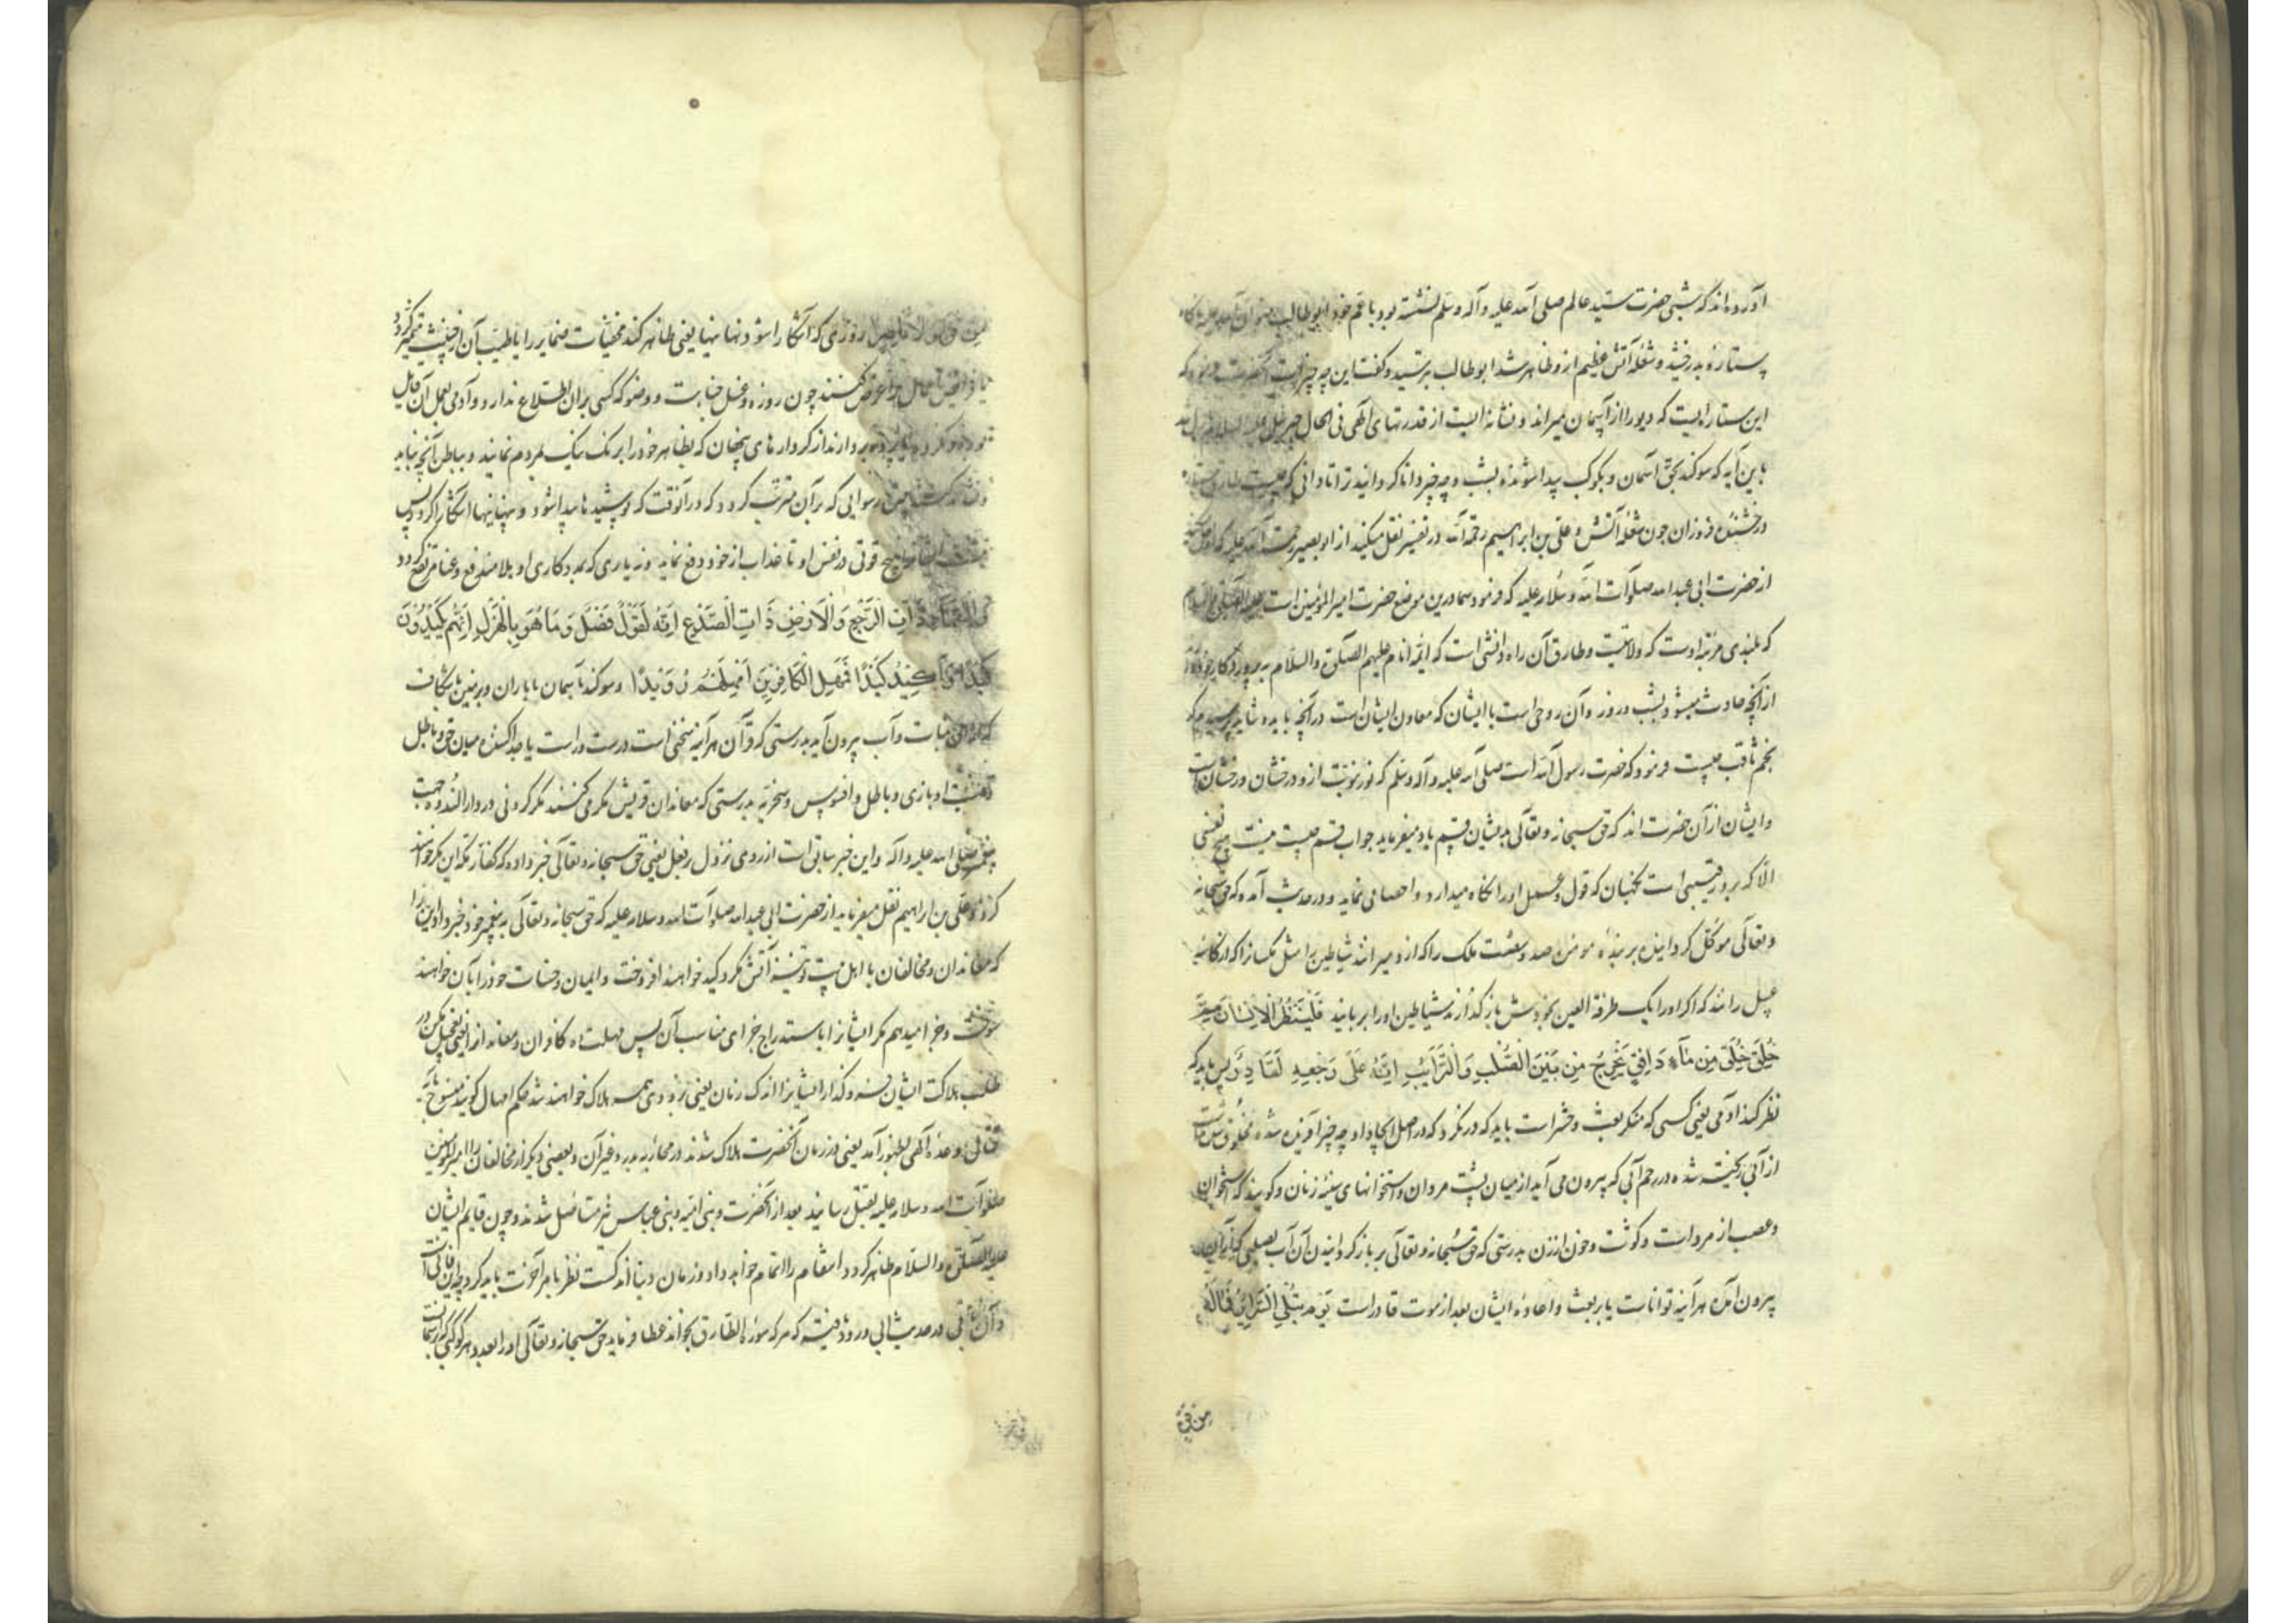 آورده‌اند که شبی حضرت سید عالم صلی الله علیه و آله و سلم نشسته بود با عم خود ابو طالب
ستاره بدرخشید و شعله آتش عظیم ازو ظاهر شد ابو طالب بترسید و کفت این چه چیزست آنحضرت فرمود که
این ستاره‌ایست که دیو را از آسمان میراند و نشانه ایست از قدرتهای الهی فی الحال جبرئیل علیه السلام
باین آیه که سوکند بحق آسمان و بکوکب پیدا شونده بشب و چه چیز دانا کردانید ترا تا دانی که چیست طارق
درخشنده فروزان چون شعله آتش و علی بن ابراهیم رحمه الله در تفسیر نقل میکند از ابو بصیر رحمت الله علیه که او
از حضرت ابی عبد الله صلوات الله و سلامه علیه که فرمود سما درین موضع حضرت امیر المؤمنین است علیه الصلوة و السلام
که بلندی مرتبه اوست که ولایتست و طارق آن راه دانشی است که ائمه انام علیهم الصلوة والسلام
از آنچه حادث میشود بشب و روز و آن روحی است با ایشان که معاون ایشان است در آنچه باید و شاید
نجم ثاقب چیست فرمود که حضرت رسول الله است صلی الله علیه و آله و سلم که نور نبوت ازو درخشان
و ایشان از آن حضرت اند که حق سبحانه و تعالی بدیشان قسم یاد میفرماید جواب قسم چیست نیست هیچ نفسی
الا که برو رقیبی است نکهبان که قول و عمل او را نکاه میدارد و احصا می نماید و در حدیث آمده که حق سبحانه
و تعالی موکل کردانیده بر بنده مومن صد و شصت ملک را که ازو میرانند شیاطین را مثل مکس را که از کاسه
عسل رانند که اکر او را یک طرفة العین بخودش باز کذارند شیاطین او را بربایند فَلْيَنْظُرِ الْاِنْسَانُ مِمَّ
خُلِقَ خُلِقَ مِن مَآءٍ دَافِقٍ يَخْرُجُ مِن بَيْنِ الصُّلْبِ وَالتَّرَآئِبِ اِنَّهُ عَلَى رَجْعِهِ لَقَادِرٌ پس باید که
نظر کند آدمی یعنی کسی که منکر بعث و حشر است باید که درنکرد که در اصل ایجاد او چه چیز آفریده شده
از آبی ریخته شده در رحم آبی که بیرون می آید از میان پشت مردان و استخوانهای سینه زنان و کویند که استخوان
و عصب از مرد است و کوشت و خون از زن بدرستی که حق سبحانه و تعالی بر باز کردانیدن آن آب
بیرون آمده هر آینه تواناست یا بر بعث و اعاده ایشان بعد از موت قادر است يَوْمَ تُبْلَى السَّرَائِرُ فَمَا لَهُ
من قوة
مِن قُوَّةٍ وَلَا نَاصِرٍ روزی که آشکارا شود نهانیها یعنی ظاهر کند مخفیات ضمایر را تا طیب آن از خبیث متمیز کردد
عرض کنند چون روزه و غسل جنابت و وضو که کسی بر آن اطلاع ندارد و آدمی بعمل آن قایل
پرده بردارند از کردارهای پنهان که بظاهر خود را برنک نیک بمردم نمایند و بباطن آنچه نباید
رسوایی که بر آن مترتب کردد که در آنوقت که پوشیدها پیدا شود و پنهانیها آشکارا کردد پس
هیچ قوتی در نفس او تا عذاب از خود دفع نماید و نه یاری که بمددکاری او بلا مندفع و عنا مرتفع کردد
وَالسَّمَآءِ ذَاتِ الرَّجْعِ وَالْاَرْضِ ذَاتِ الصَّدْعِ اِنَّهُ لَقَوْلٌ فَصْلٌ وَمَا هُوَ بِالْهَزْلِ اِنَّهُمْ يَكِيدُونَ
كَيْدًا وَاَكِيدُ كَيْدًا فَمَهِّلِ الْكَافِرِينَ اَمْهِلْهُمْ رُوَيْدًا و سوکند بآسمان با باران و بزمین با شکافت
که ازان نبات و آب بیرون آید بدرستی که قرآن هر آینه سخنی است درست و راست یا جدا کننده میان حق و باطل
و نیست او بازی و باطل و افسوس و سخریه بدرستی که معاندان قریش مکر می کنند مکر کردنی در دار الندوه جهت
پیغمبر صلی الله علیه و آله و این خبر سابق است از روی نزول بر فعل یعنی حق سبحانه و تعالی خبر داده که کفار مکه این مکر خواهند
کرد و علی بن ابراهیم نقل میفرماید از حضرت ابی عبد الله صلوات الله و سلامه علیه که حق سبحانه و تعالی به پیغمبر خود خبر داد این را
که معاندان و مخالفان با اهل بیت تو تیشه آتش مکر و کید خواهند افروخت و ایمان و حسنات خود را بآن خواهند
سوخت و جزا میدهم مکر ایشان را باستدراج جزای مناسب آن پس مهلت ده کافران و معاندانرا یعنی تعجیل مکن در
طلب هلاکت ایشان و کذار ایشانرا اندک زمان یعنی بزودی همه هلاک خواهند شد حکم امهال کویند منسوخ بآیه
قتال و وعده الهی بظهور آمد یعنی در زمان آنحضرت هلاک شدند در محاربه بدر و غیر آن و بعضی دیکر از مخالفان را امیر المومنین
صلوات الله و سلامه علیه بقتل رسانید بعد از آنحضرت و بنی امیه و بنی عباس نیز مستاصل شدند و چون قایم ایشان
علیه الصلوة والسلام ظاهر کردد انتقام را اتمام خواهد داد و زمان دنیا اندکست نظر بامر آخرت باید کرد چه این فانی است
و آن باقی و در حدیث ابی ورود یافته که هر که سوره الطارق بخواند عطا فرماید حق سبحانه و تعالی او را بعدد هر کوکبی که در آسمانست